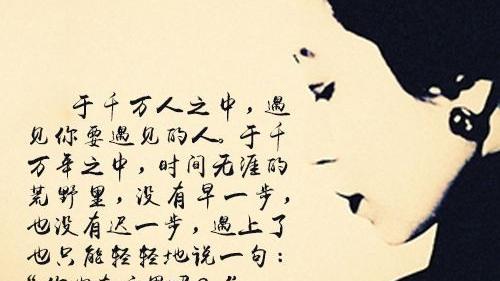 于千万人之中，遇
见你要遇见的人。于千
万年之中，时间无涯的
荒野里，没有早一步，
也没有迟一步，遇上了
也只能轻轻地说一句：